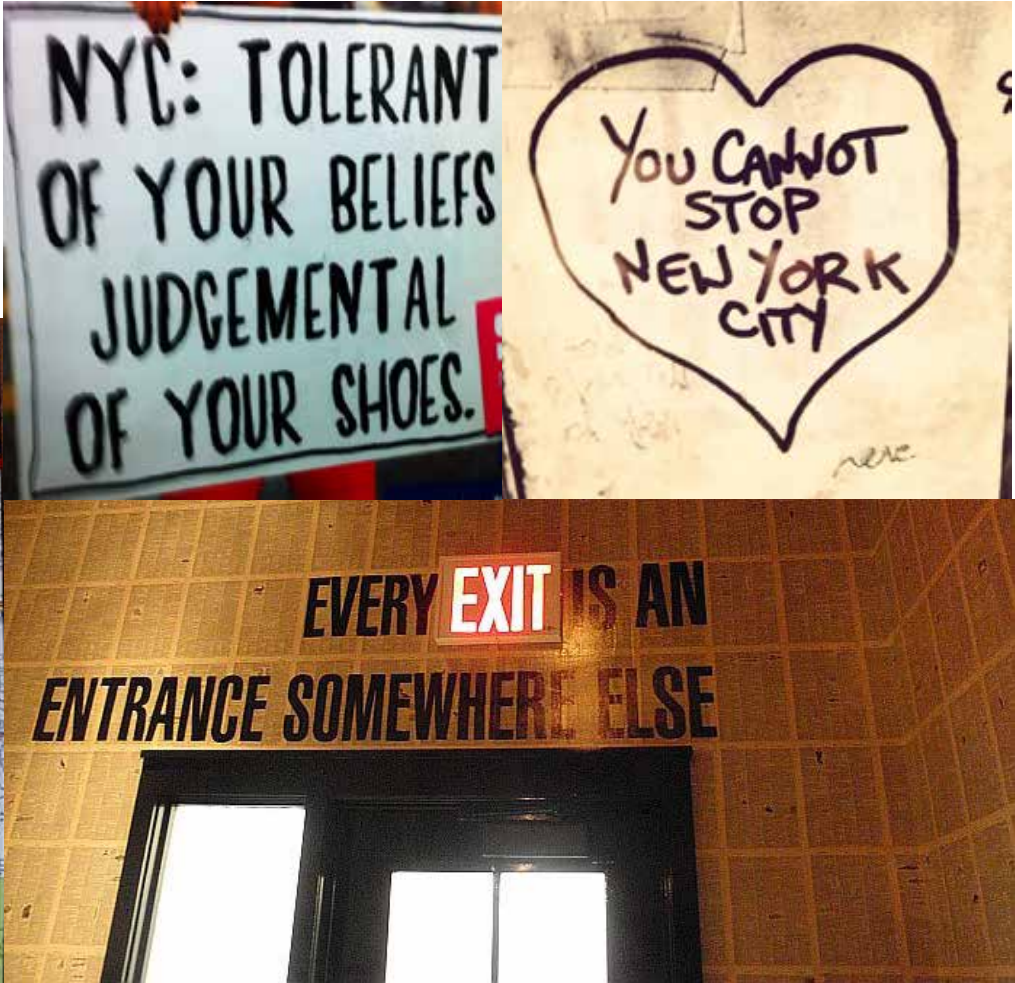 NYC: TOLERANT
OF YOUR BELIEFS
JUDGEMENTAL
OF YOUR SHOES.
YOU CANNOT
STOP
NEW YORK
CITY
EVERY EXIT IS AN
ENTRANCE SOMEWHERE ELSE